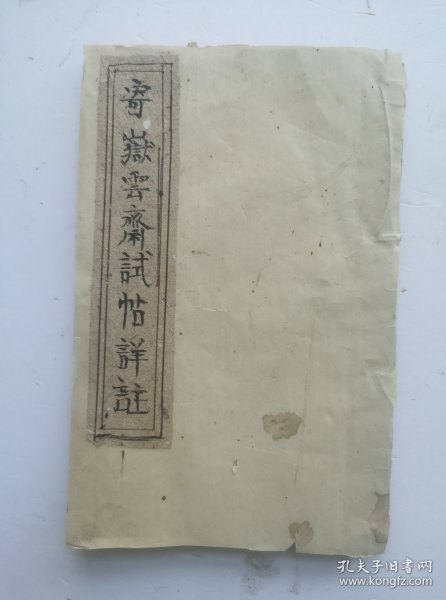 寄嶽雲齋試帖詳註
孔夫子旧书网
www.kongfz.com